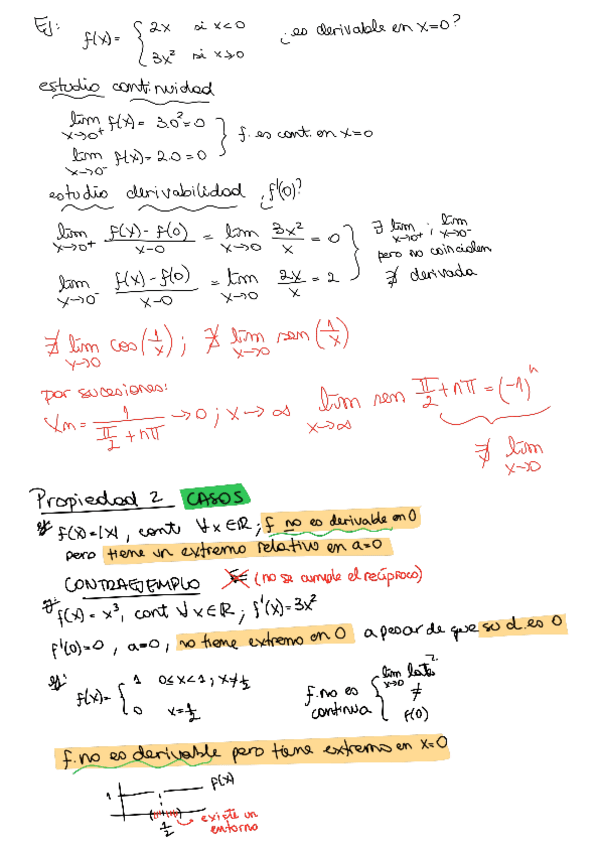 Ej: f(x) = { 2x si x<0 ¿es derivable en x=0?
3x² si x≥0
estudio continuidad
lim x→0⁺ f(x) = 3.0² = 0 } f. es cont. en x=0
lim x→0⁻ f(x) = 2.0 = 0
estudio derivabilidad ¿f'(0)?
lim x→0⁺ f(x) - f(0) / x-0 = lim x→0 3x² / x = 0 } ∃ lim x→0⁺ ; lim x→0⁻
pero no coinciden
lim x→0⁻ f(x) - f(0) / x-0 = lim x→0 2x / x = 2 ∄ derivada
∄ lim x→0 cos(1/x) ; ∄ lim x→0 sen(1/x)
por sucesiones:
Xn = 1 / π/2 + nπ → 0 ; x → ∞ lim x→∞ sen π/2 + nπ = (-1)ⁿ
∄ lim x→0
Propiedad 2 CASOS
ej: f(x) = |x| , cont ∀x∈ℝ ; f no es derivable en 0
pero tiene un extremo relativo en a=0
CONTRAEJEMPLO ⇐ (no se cumple el recíproco)
ej: f(x) = x³, cont ∀x∈ℝ ; f'(x) = 3x²
f'(0)=0 , a=0, no tiene extremo en 0 a pesar de que su d. es 0
ej: f(x) = { 1 0≤x<1 ; x≠1/2 f. no es continua { lim x→0
0 x=1/2 ≠
f(0)
f. no es derivable pero tiene extremo en x=0
1 f(x)
1/2 → existe un
entorno